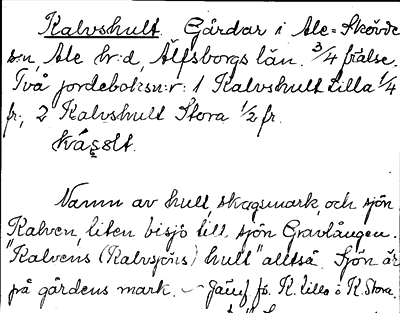 Kalvshult. Gårdar i Ale-Skövde
s:n, Ale hr:d, Älfsborgs län. 3/4 frälse.
Två jordeboksn:r: 1 Kalvshult Lilla 1/4
fr., 2 Kalvshult Stora 1/2 fr.
Namn av hult, skogsmark, och sjön
Kalven, liten bisjö till sjön Gravlången.
"Kalvens (Kalvsjöns) hult" alltså. Sjön är
på gårdens mark. – Jämf fs. K. Lilla o K. Stora.